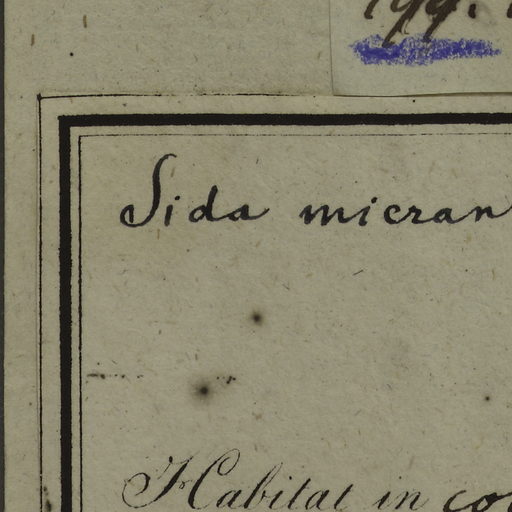 Sida micran
Habitat in co